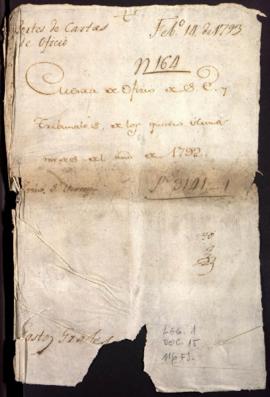 Portes de Cartas
de Oficio
Feb.º 14 de 1793
N 164
Cuenta de Oficio de S. E. y
Tribunales, de los quatro ultimos
meses del año de 1792.
3191 - 1
Gastos
LEG. 1
DOC. 15
116 FJ.